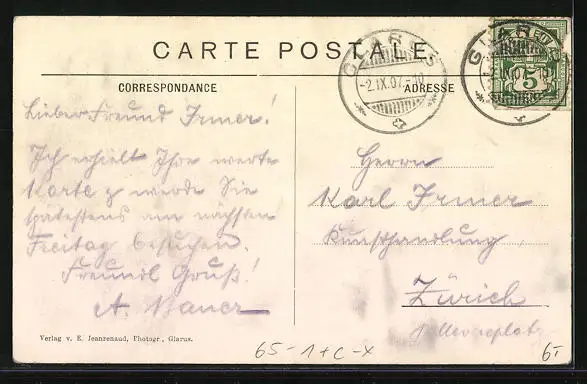 CARTE POSTALE
CORRESPONDANCE
ADRESSE
GLARUS
-2.IX.07.-10
GLARUS
5
Lieber Freund Irmer!
Ich erhielt Ihre werte
Karte & werde Sie
spätestens am nächsten
Freitag besuchen.
Freundl Gruß!
A.
Herrn
Karl Irmer
Kunsthandlung
Zürich
Verlag v. E. Jeanrenaud, Photogr., Glarus.
65-1+C-X